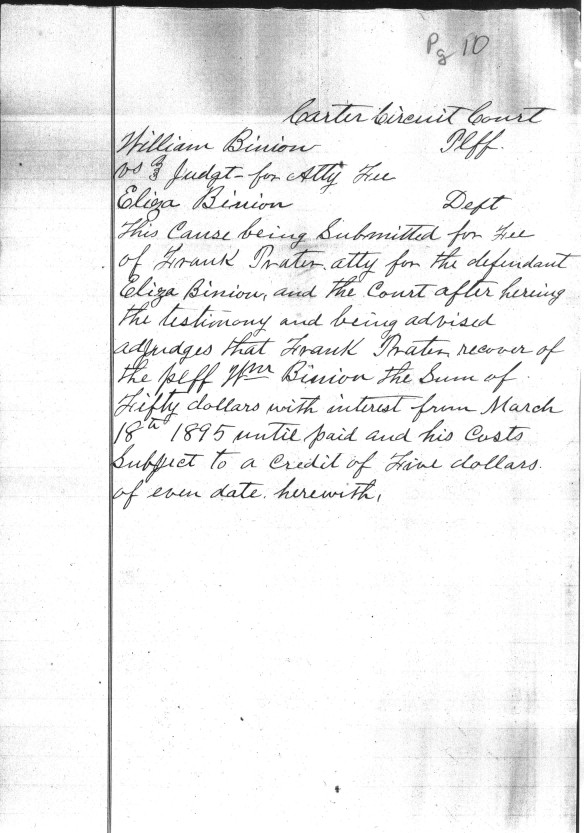 Pg 10
Carter Circuit Court
William Binion Plff.
vs } Judgt for Atty Fee
Eliza Binion Deft
This Cause being Submitted for Fee
of Frank Prater atty for the defendant
Eliza Binion, and the Court after hering
the testimony and being advised
adjudges that Frank Prater recover of
the plff Wm Binion the Sum of
Fifty dollars with interest from March
18th 1895 until paid and his Costs
Subject to a Credit of Five dollars.
of even date herewith.